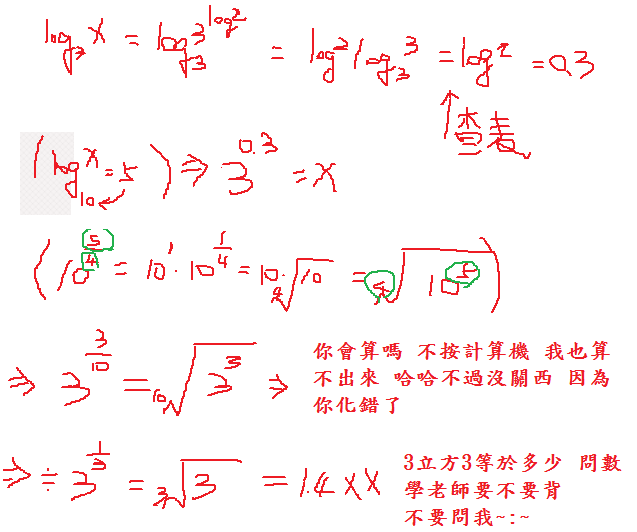 log₃ x = log₃ 3^(log 2) = log 2 log₃ 3 = log 2 = 0.3
查表
(log₁₀ x = 5) ⇒ 3^0.3 = x
(10^(5/4) = 10^1 · 10^(1/4) = 10 · ⁴√10 = ⁴√10^5)
⇒ 3^(3/10) = ¹⁰√3^3 ⇒
你會算嗎 不按計算機 我也算
不出來 哈哈不過沒關西 因為
你化錯了
⇒ ÷ 3^(1/3) = ³√3 = 1.4xx
3立方3等於多少 問數
學老師要不要背
不要問我~:~